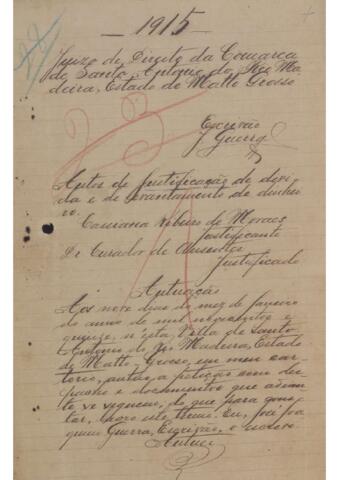 1915
Juizo de Direito da Comarca
de Santo Antonio do Rio Ma-
deira, Estado de Matto Grosso
Escrivão
J. Guerra
Autos de justificação de divi-
da e de levantamento de dinhei-
ro.
Ribeiro de Moraes
Justificante
Dr Curador de Ausentes
Justificado
Autuação
Aos nove dias do mez de Janeiro
do anno de mil novecentos e
quinze, n'esta Villa de Santo
Antonio do Rio Madeira, Estado
de Matto-Grosso, em meu car-
torio, autuo a petição com des-
pacho e documentos que adian-
te se seguem; do que para cons-
tar, lavro este termo. Eu, Joa-
quim Guerra, Escrivão, o escrevi.
Autuei